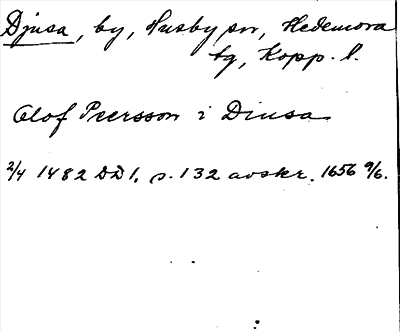 Djusa, by, Husby sn, Hedemora
tg, Kopp. l.
Olof Peersson i Diusa
2/4 1482 DD 1, s. 132 avskr. 1656 9/6.